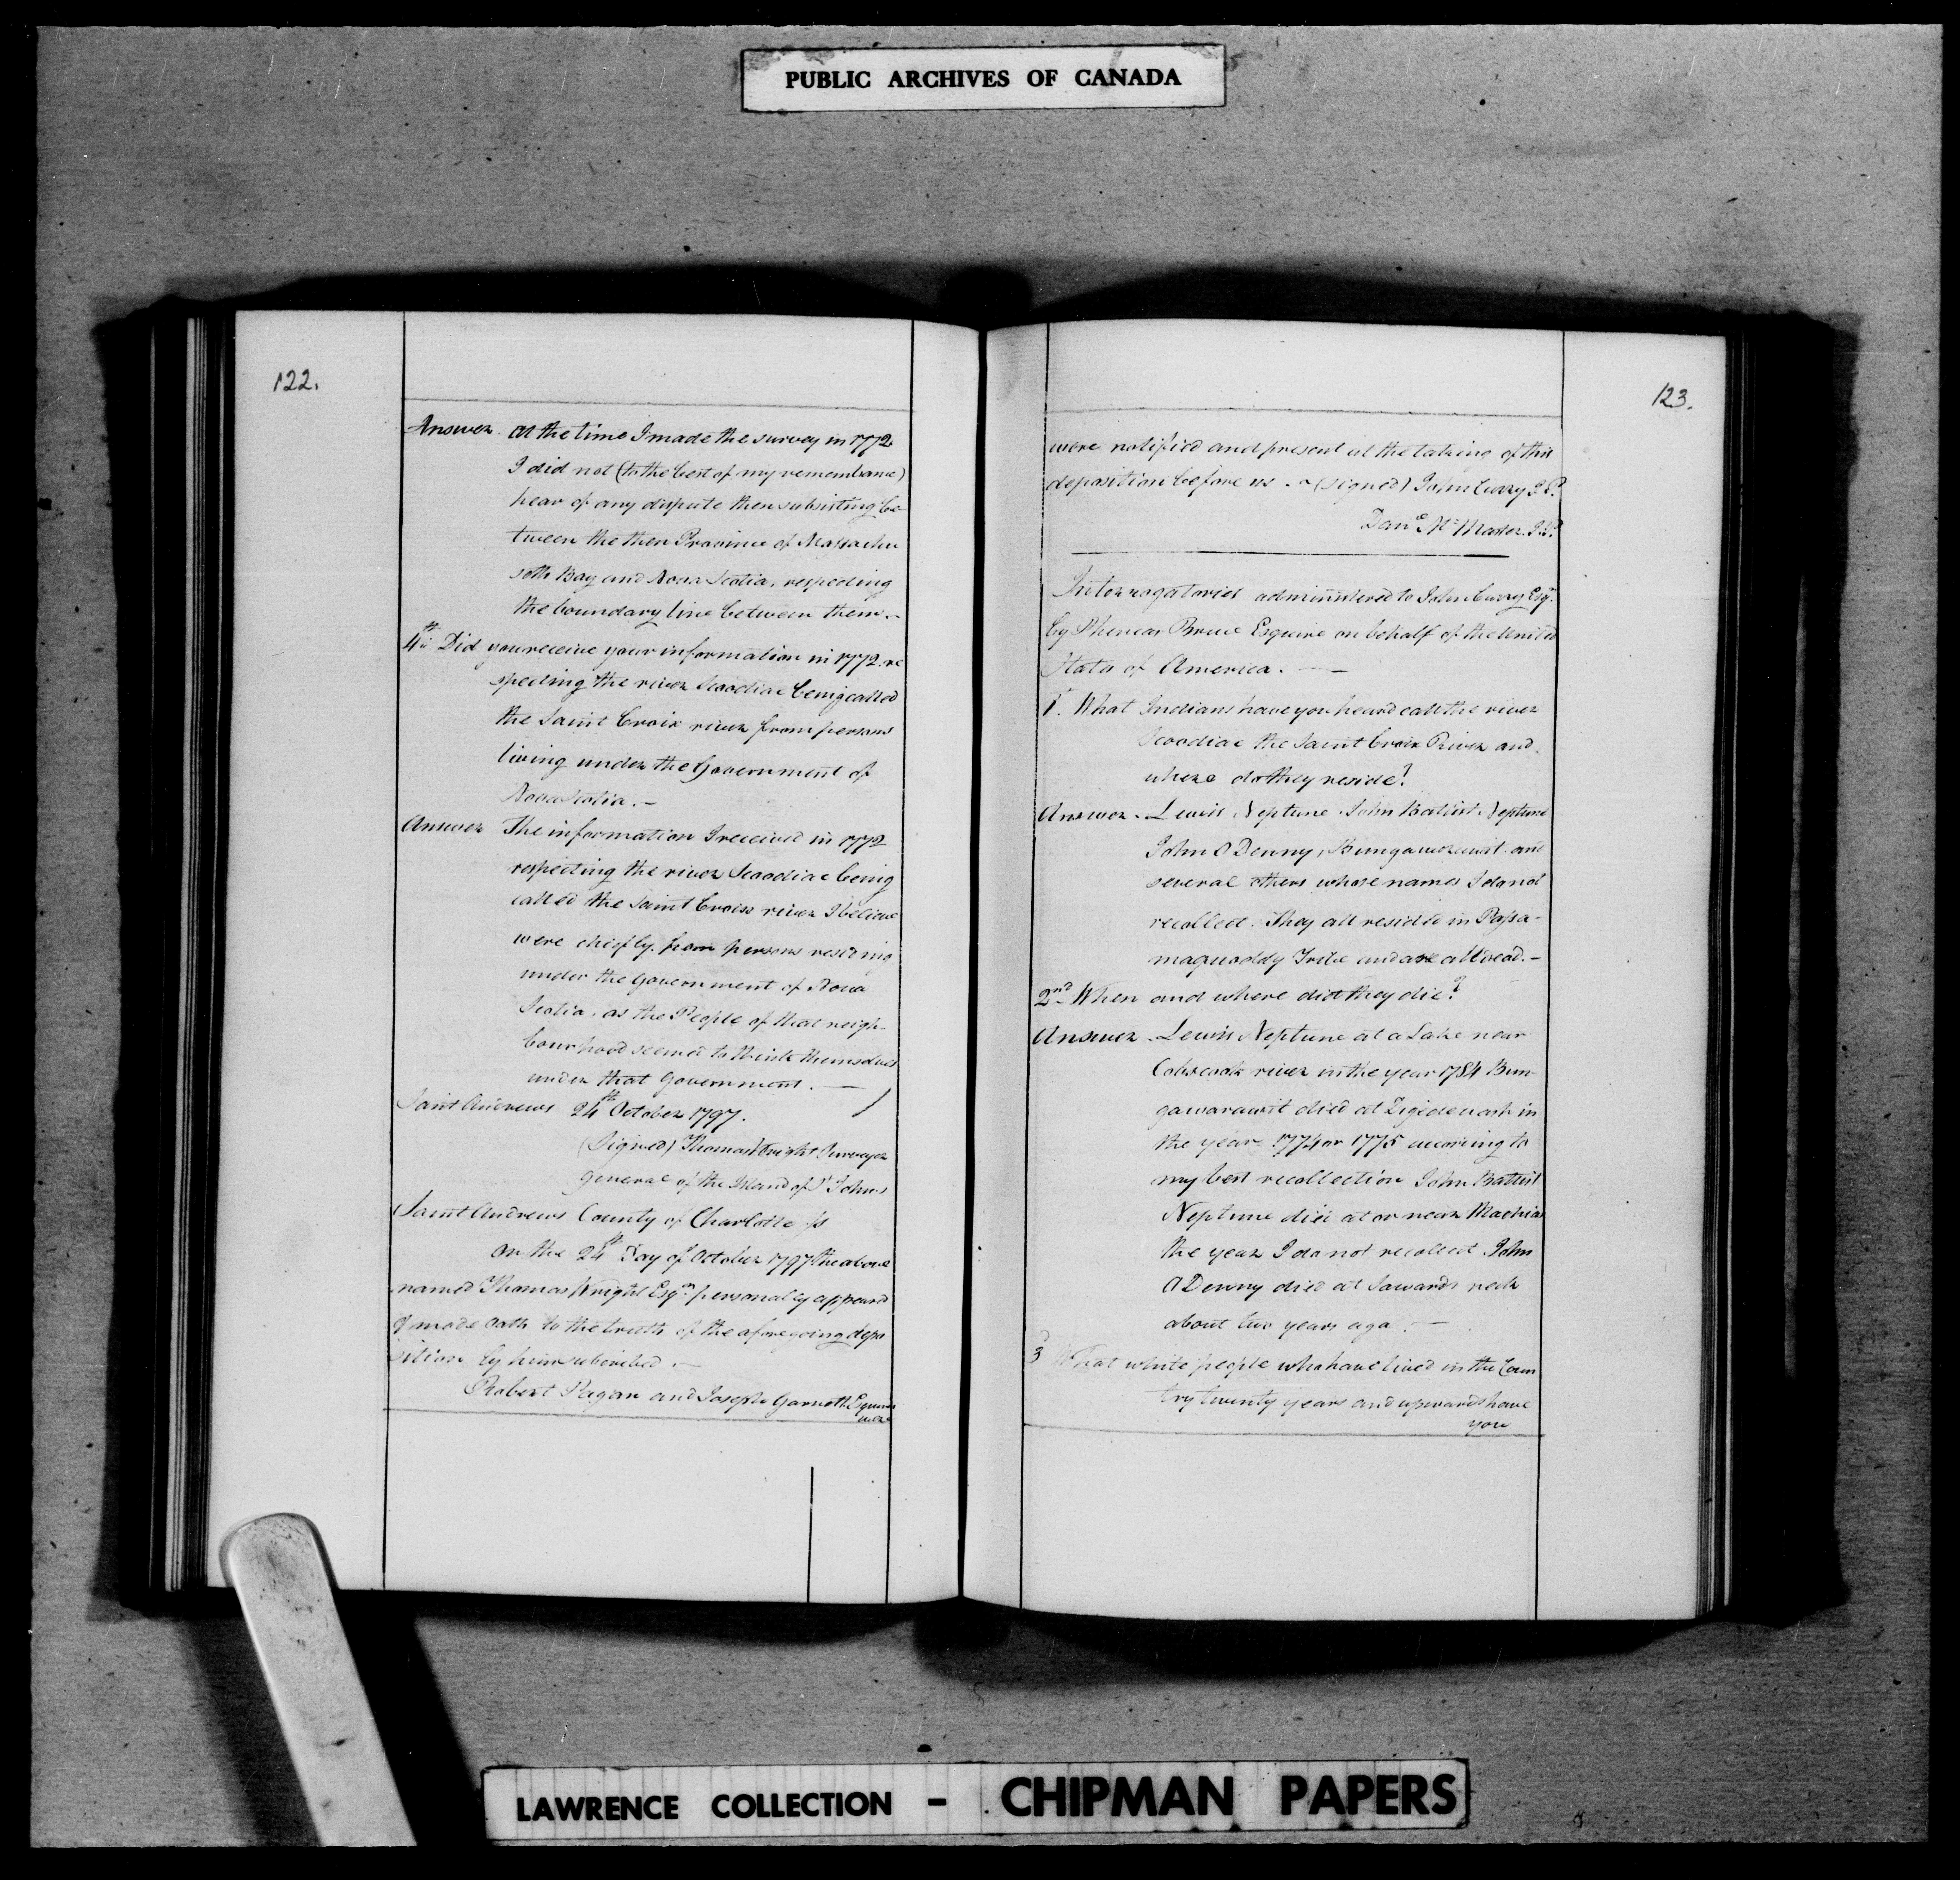 PUBLIC ARCHIVES OF CANADA
122.
Answer. At the time I made the survey in 1772
I did not (to the best of my remembrance)
hear of any dispute then subsisting be-
tween the then Province of Massachu
setts Bay and Nova Scotia, respecting
the boundary line between them.-
4th Did you receive your information in 1772 re
specting the river Scoodiac being called
the Saint Croix river from persons
living under the Government of
Nova Scotia.-
Answer The information I received in 1772
respecting the river Scoodiac being
called the Saint Croix river I believe
were chiefly from persons residing
under the Government of Nova
Scotia, as the People of that neigh-
bourhood seemed to think themselves
under that Government. —
Saint Andrews 24th October 1797.
(Signed) Thomas Wright Surveyor
General of the Island of St Johns
Saint Andrews County of Charlotte ss
On the 24th Day of October 1797 the above
named Thomas Wright Esqr. personally appeared
& made Oath to the truth of the aforegoing depo
sition by him subscribed.-
Robert Pagan and Joseph Garnett Esquires
were
123.
were notified and present at the taking of this
deposition before us. - (signed) John Curry J.P.
Danl. McMaster J.P.
Interrogatories administered to John Curry Esqr.
by Phineas Bruce Esquire on behalf of the United
States of America. —
1st. What Indians have you heard call the river
Scoodiac the Saint Croix River and
where do they reside?
Answer. Lewis Neptune John Battist Neptune
John O Denny, Bungawarrawit and
several others whose names I do not
recollect. They all resided in Passa-
maquoddy Tribe and are all dead.-
2nd When and where did they die?
Answer. Lewis Neptune at a Lake near
river in the year 1784 Bun-
gawarawit died at Digdewash in
the year 1774 or 1775 according to
my best recollection John Battist
Neptune died at or near Machias
the year I do not recollect John
O Denny died at Sawards neck
about two years ago. —
3 What white people who have lived in the Coun
try twenty years and upwards have
you
LAWRENCE COLLECTION - CHIPMAN PAPERS